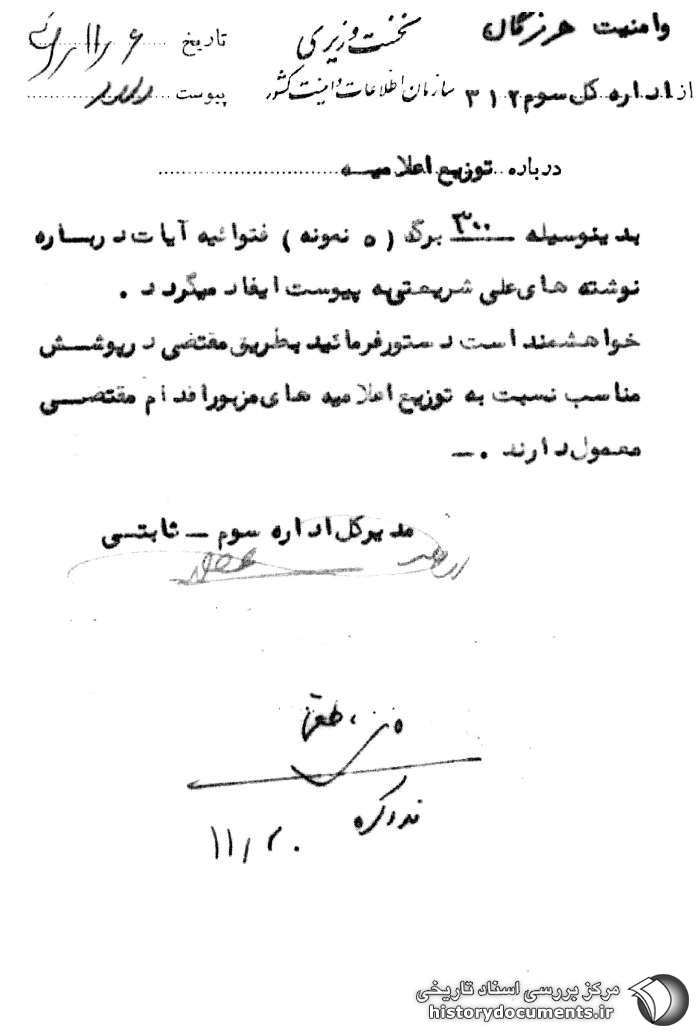 وامنیت هرزگان
نخست وزیری
تاریخ
از اداره کل سوم ۳۱۲
سازمان اطلاعات و امنیت کشور
پیوست دارد
درباره توزیع اعلامیه
بدینوسیله ۳۰۰ برگ ( ۵ نمونه ) فتوائیه آیات درباره
نوشته های علی شریعتی به پیوست ایفاد میگردد .
خواهشمند است دستور فرمائید بطریق مقتضی در پوشش
مناسب نسبت به توزیع اعلامیه های مزبور اقدام مقتضی
معمول دارند . ــ
مدیرکل اداره سوم ــ ثابتی
مرکز بررسی اسناد تاریخی
historydocuments.ir